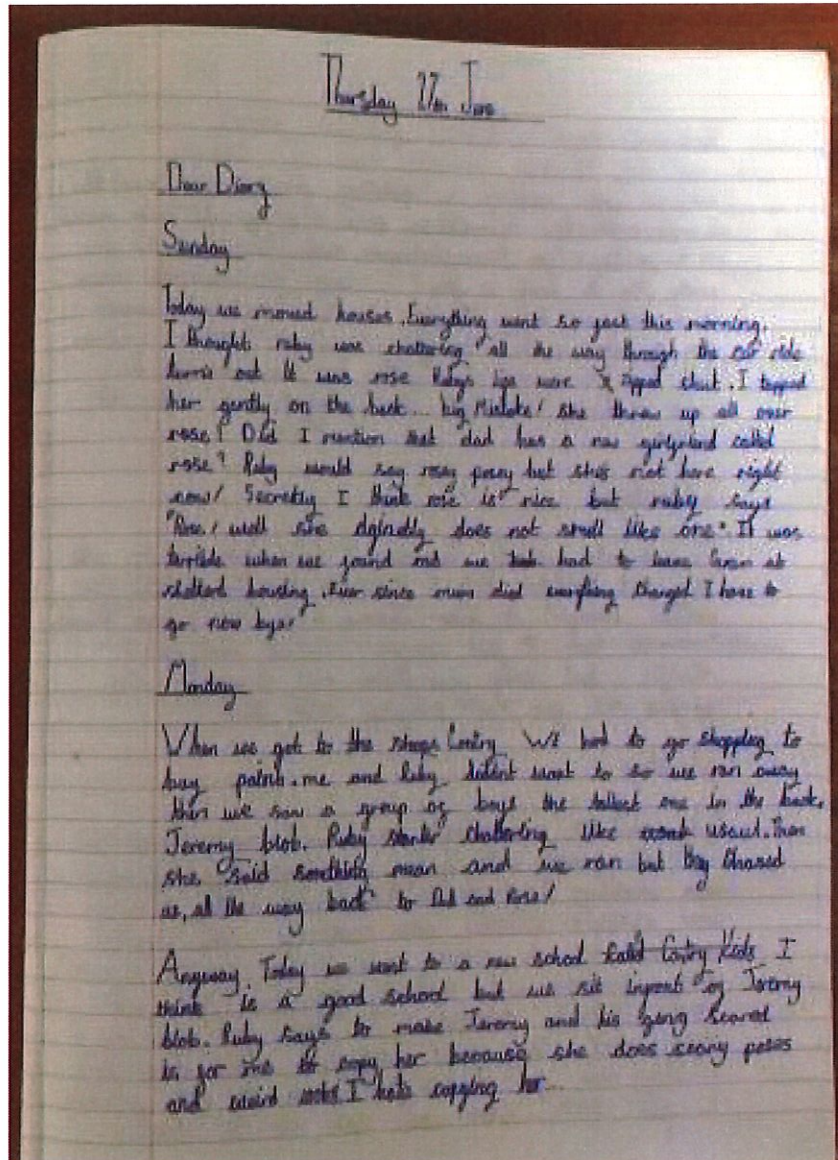 Thursday 27th June
Dear Diary
Sunday
Today we moved houses. Everything went so fast this morning.
I thought ruby was chattering all the way through the car ride
turns out it was rose Rubys lips were zipped shut. I tapped
her gently on the back... big Mistake! she threw up all over
rose! Did I mention that dad has a new girlfriend called
rose? Ruby would say rosy posey but shes not here right
now! Secretly I think rose is nice but ruby says
"Rose! well she definetly does not smell like one". It was
terrible when we found out we had to leave Gran at
shelterd housing. Ever since mum died everything changed I have to
go now bye!
Monday
When we got to the shops We had to go shopping to
buy paint. me and Ruby didn't want to so we ran away
then we saw a group of boys the tallest one in the back.
Jeremy blob. Ruby chattering like usaul. Then
she said something mean and we ran but they Chased
us, all the way back to Dad and Rose!
Anyway. Today we went to a new school Calld Kids I
think is a good school but we sit infront of Jeremy
blob. Ruby says to make Jeremy and his gang scared
is for me to copy her because she does scary poses
and weird I hate copying her...